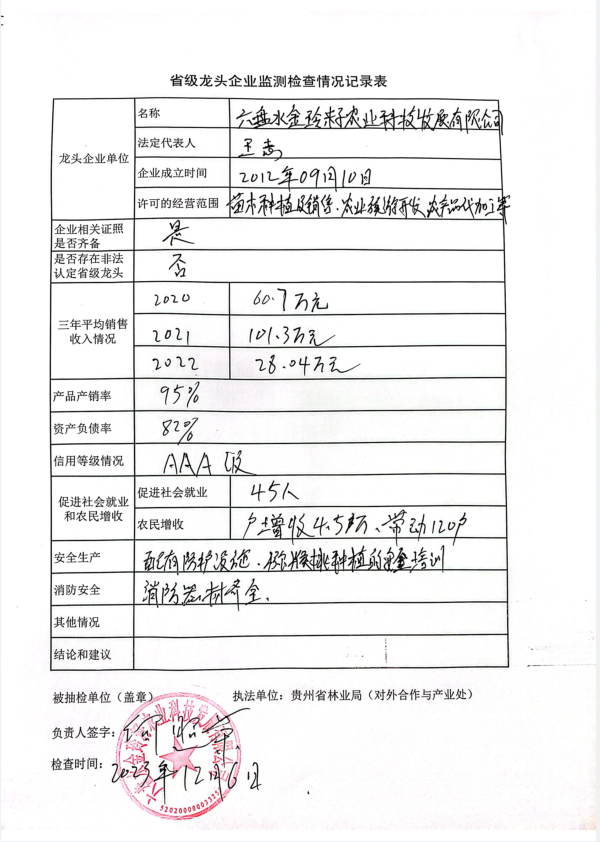 省级龙头企业监测检查情况记录表
龙头企业单位
名称 六盘水金玲籽农业科技发展有限公司
法定代表人 王志
企业成立时间 2012年09月10日
许可的经营范围 苗木种植及销售、农业旅游开发、农产品代加工等
企业相关证照
是否齐备 是
是否存在非法
认定省级龙头 否
三年平均销售
收入情况
2020 60.7万元
2021 101.3万元
2022 28.04万元
产品产销率 95%
资产负债率 82%
信用等级情况 AAA级
促进社会就业
和农民增收
促进社会就业 45人
农民增收 户增收4.5万、带动120户
安全生产 配有防护设施、种植的 培训
消防安全 消防器材齐全、
其他情况
结论和建议
被抽检单位（盖章） 执法单位：贵州省林业局（对外合作与产业处）
负责人签字：
检查时间： 2023年12月6日